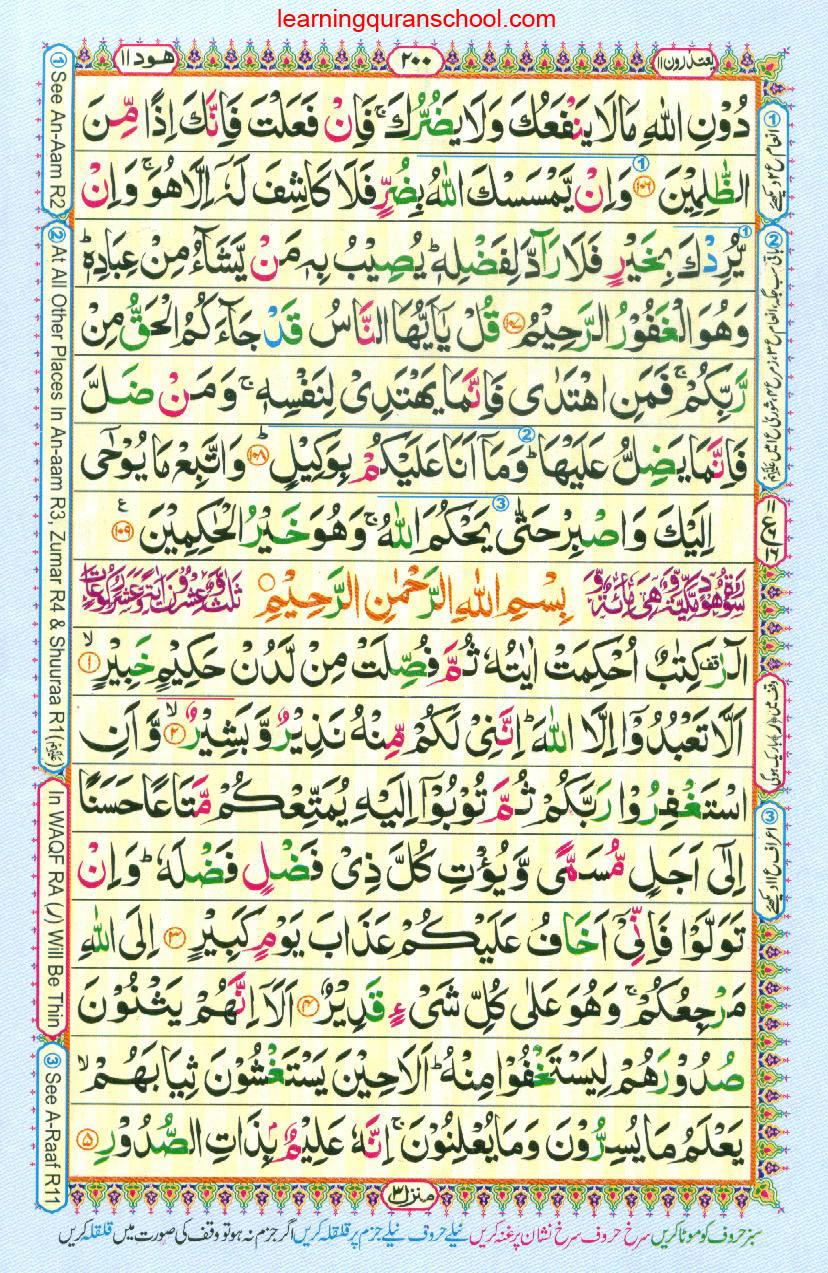 learningquranschool.com
يعتذرون ١١ ٢٠٠ هود ١١
دُوْنِ اللّٰهِ مَا لَا يَنْفَعُكَ وَلَا يَضُرُّكَ ۚ فَاِنْ فَعَلْتَ فَاِنَّكَ اِذًا مِّنَ
الظّٰلِمِيْنَ ١٠٦ وَاِنْ يَّمْسَسْكَ اللّٰهُ بِضُرٍّ فَلَا كَاشِفَ لَهٗۤ اِلَّا هُوَ ۚ وَاِنْ
يُّرِدْكَ بِخَيْرٍ فَلَا رَآدَّ لِفَضْلِهٖ ؕ يُصِيْبُ بِهٖ مَنْ يَّشَآءُ مِنْ عِبَادِهٖ ؕ
وَهُوَ الْغَفُوْرُ الرَّحِيْمُ ١٠٧ قُلْ يٰۤاَيُّهَا النَّاسُ قَدْ جَآءَكُمُ الْحَقُّ مِنْ
رَّبِّكُمْ ۚ فَمَنِ اهْتَدٰى فَاِنَّمَا يَهْتَدِىْ لِنَفْسِهٖ ۚ وَمَنْ ضَلَّ
فَاِنَّمَا يَضِلُّ عَلَيْهَا ؕ وَمَاۤ اَنَا عَلَيْكُمْ بِوَكِيْلٍ ؕ ١٠٨ وَاتَّبِعْ مَا يُوْحٰۤى
اِلَيْكَ وَاصْبِرْ حَتّٰى يَحْكُمَ اللّٰهُ ۚ وَهُوَ خَيْرُ الْحٰكِمِيْنَ ١٠٩ ع
سُوْرَةُ هُوْدٍ مَّكِّيَّةٌ وَّهِىَ مِائَةٌ وَّ بِسْمِ اللّٰهِ الرَّحْمٰنِ الرَّحِيْمِ ثَلٰثٌ وَّعِشْرُوْنَ اٰيَةً وَّعَشْرُ رُكُوْعَاتٍ
الٓرٰ ࣞ كِتٰبٌ اُحْكِمَتْ اٰيٰتُهٗ ثُمَّ فُصِّلَتْ مِنْ لَّدُنْ حَكِيْمٍ خَبِيْرٍ ۙ ١
اَلَّا تَعْبُدُوْۤا اِلَّا اللّٰهَ ؕ اِنَّنِىْ لَكُمْ مِّنْهُ نَذِيْرٌ وَّبَشِيْرٌ ۙ ٢ وَّاَنِ
اسْتَغْفِرُوْا رَبَّكُمْ ثُمَّ تُوْبُوْۤا اِلَيْهِ يُمَتِّعْكُمْ مَّتَاعًا حَسَنًا
اِلٰٓى اَجَلٍ مُّسَمًّى وَّيُؤْتِ كُلَّ ذِىْ فَضْلٍ فَضْلَهٗ ؕ وَاِنْ
تَوَلَّوْا فَاِنِّىْۤ اَخَافُ عَلَيْكُمْ عَذَابَ يَوْمٍ كَبِيْرٍ ٣ اِلَى اللّٰهِ
مَرْجِعُكُمْ ۚ وَهُوَ عَلٰى كُلِّ شَىْءٍ قَدِيْرٌ ٤ اَلَاۤ اِنَّهُمْ يَثْنُوْنَ
صُدُوْرَهُمْ لِيَسْتَخْفُوْا مِنْهُ ؕ اَلَا حِيْنَ يَسْتَغْشُوْنَ ثِيَابَهُمْ ۙ
يَعْلَمُ مَا يُسِرُّوْنَ وَمَا يُعْلِنُوْنَ ۚ اِنَّهٗ عَلِيْمٌۢ بِذَاتِ الصُّدُوْرِ ٥
منزل ٣
سبز حروف کو موٹا کریں سرخ حروف سرخ نشان پر غنہ کریں نیلے حروف نیلے جزم پر قلقلہ کریں اگر جزم نہ ہو تو وقف کی صورت میں قلقلہ کریں
① See An-Aam R2
② At All Other Places In An-aam R3, Zumar R4 & Shuuraa R1
In WAQF RA (ر) Will Be Thin
③ See A-Raaf R11
① انعام ع ٢ دیکھئے
وقف میں (ر) باریک ہوگی
③ اعراف ع ١١ دیکھئے